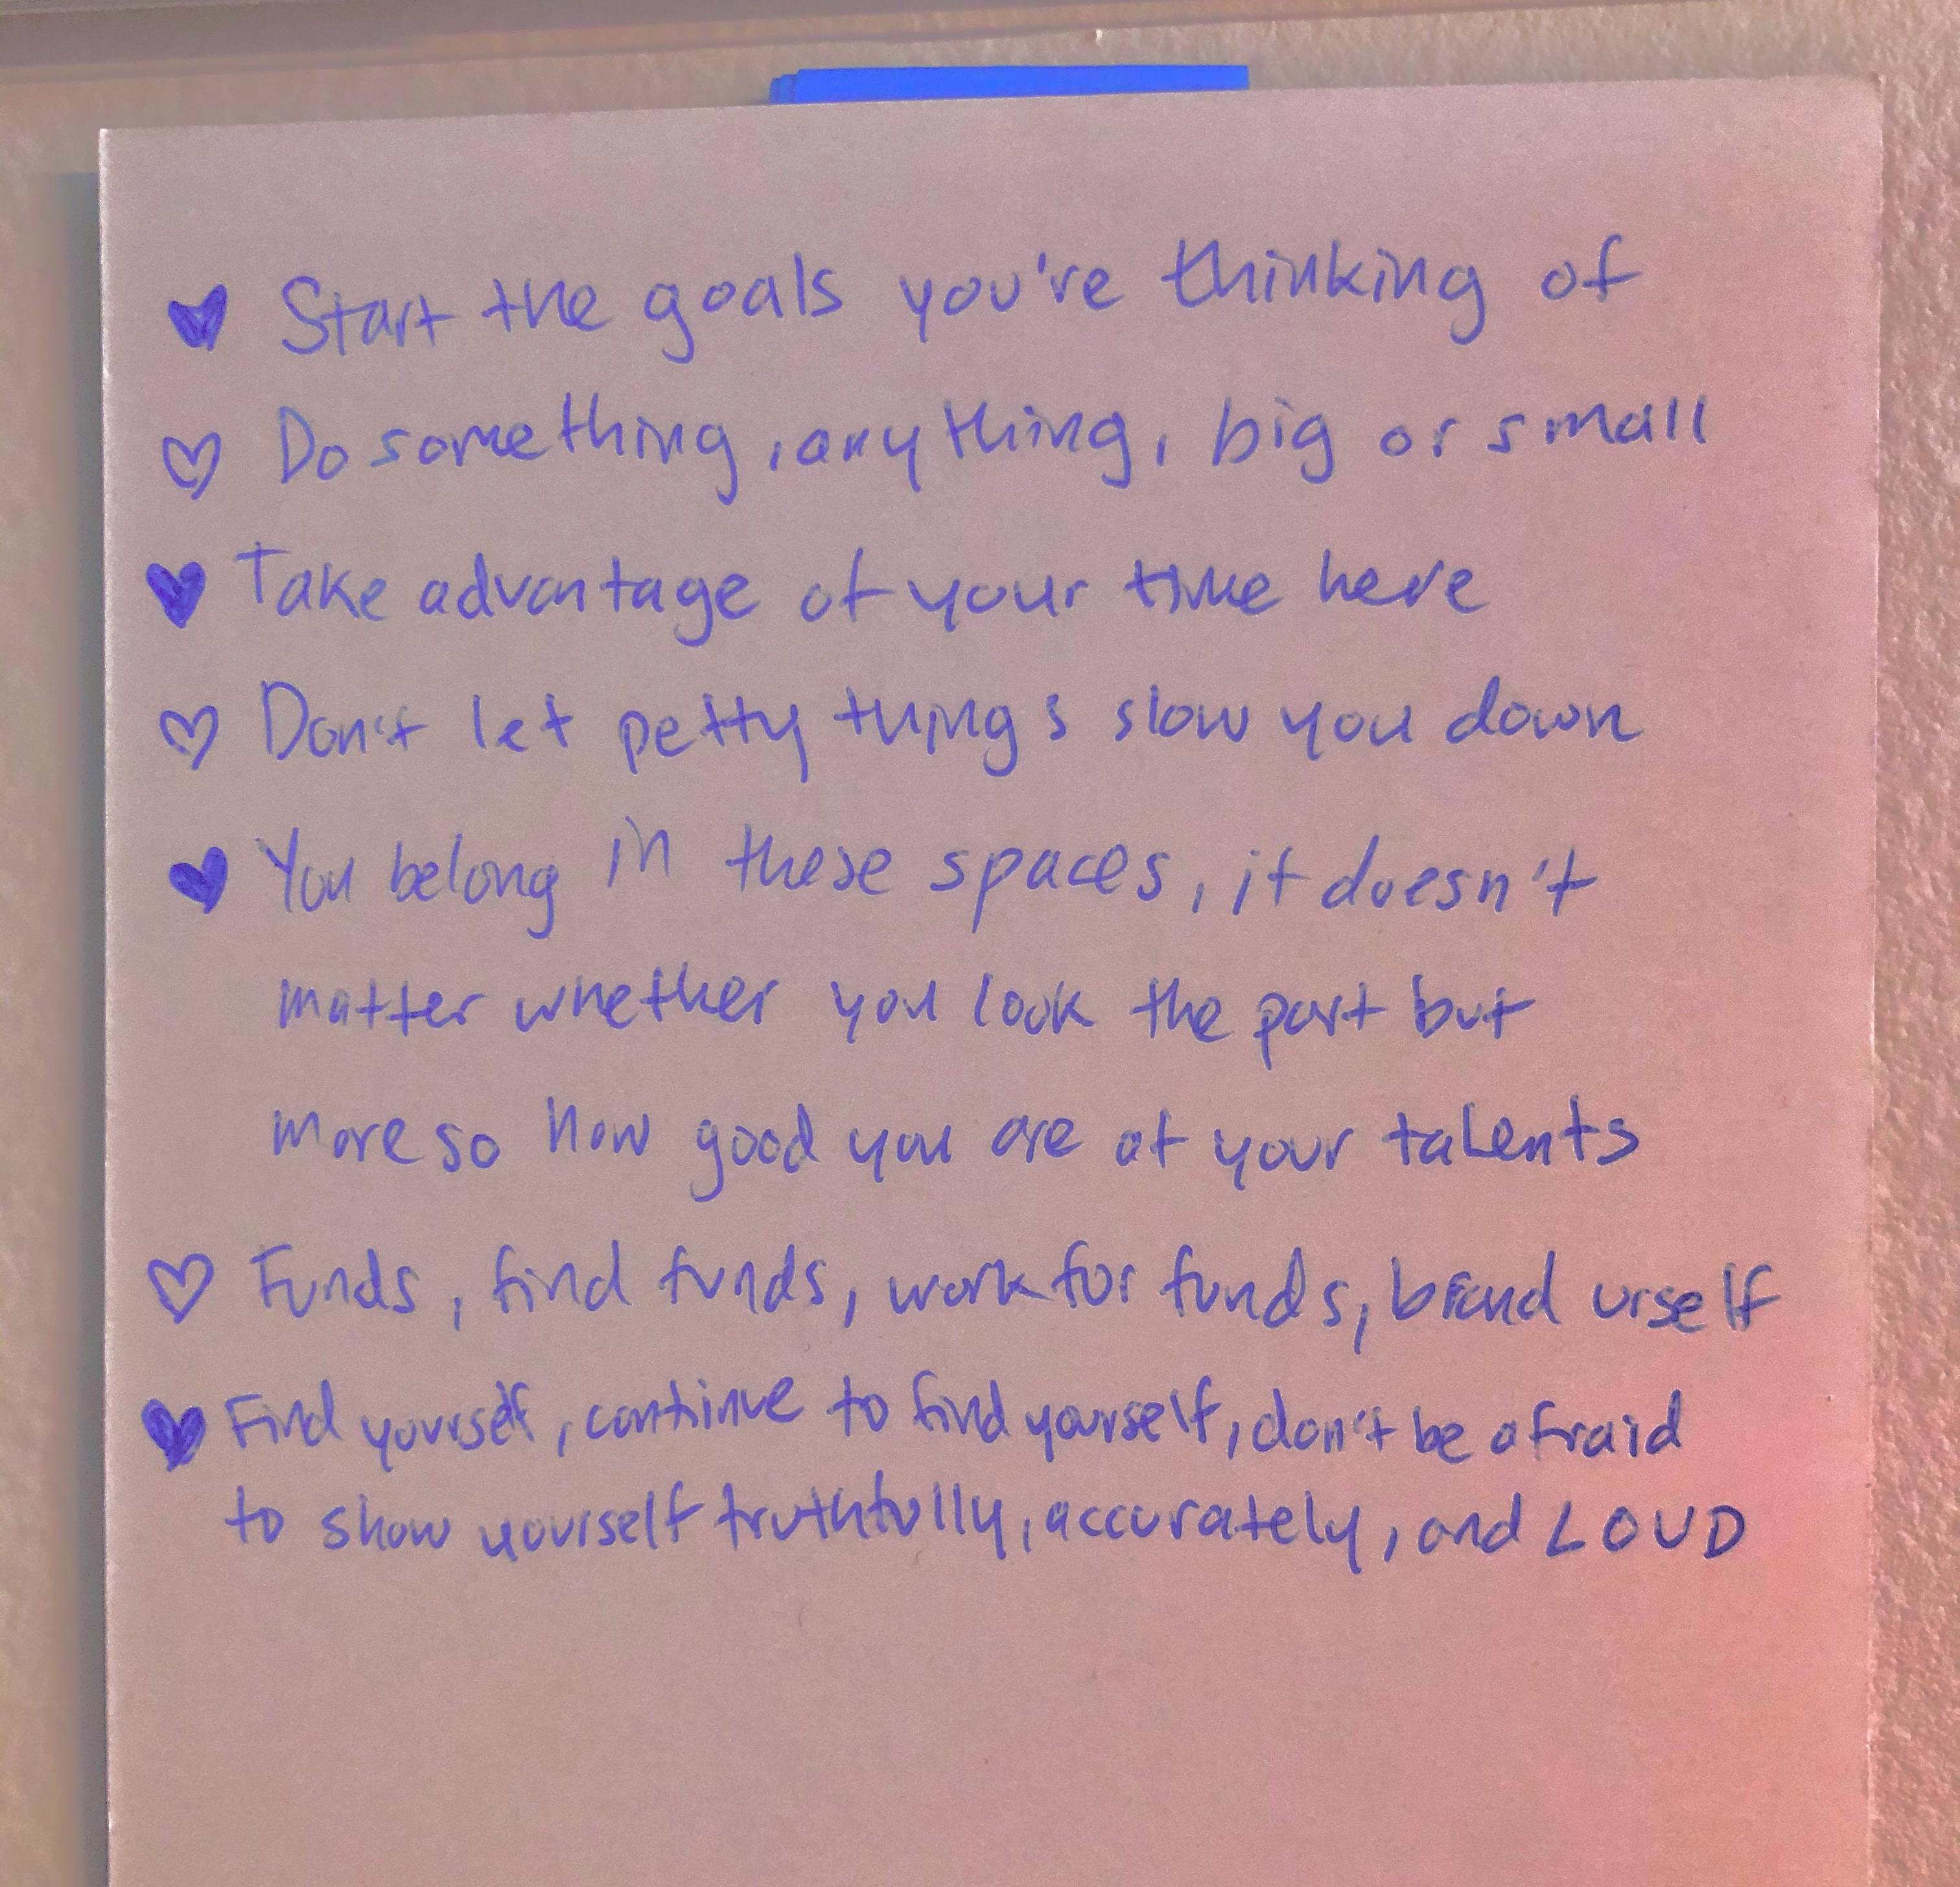 Start the goals you're thinking of
Do something, anything, big or small
Take advantage of your time here
Don't let petty things slow you down
You belong in these spaces, it doesn't
matter whether you look the part but
more so how good you are at your talents
Funds, find funds, work for funds, brand urself
Find yourself, continue to find yourself, don't be afraid
to show yourself truthfully, accurately, and LOUD